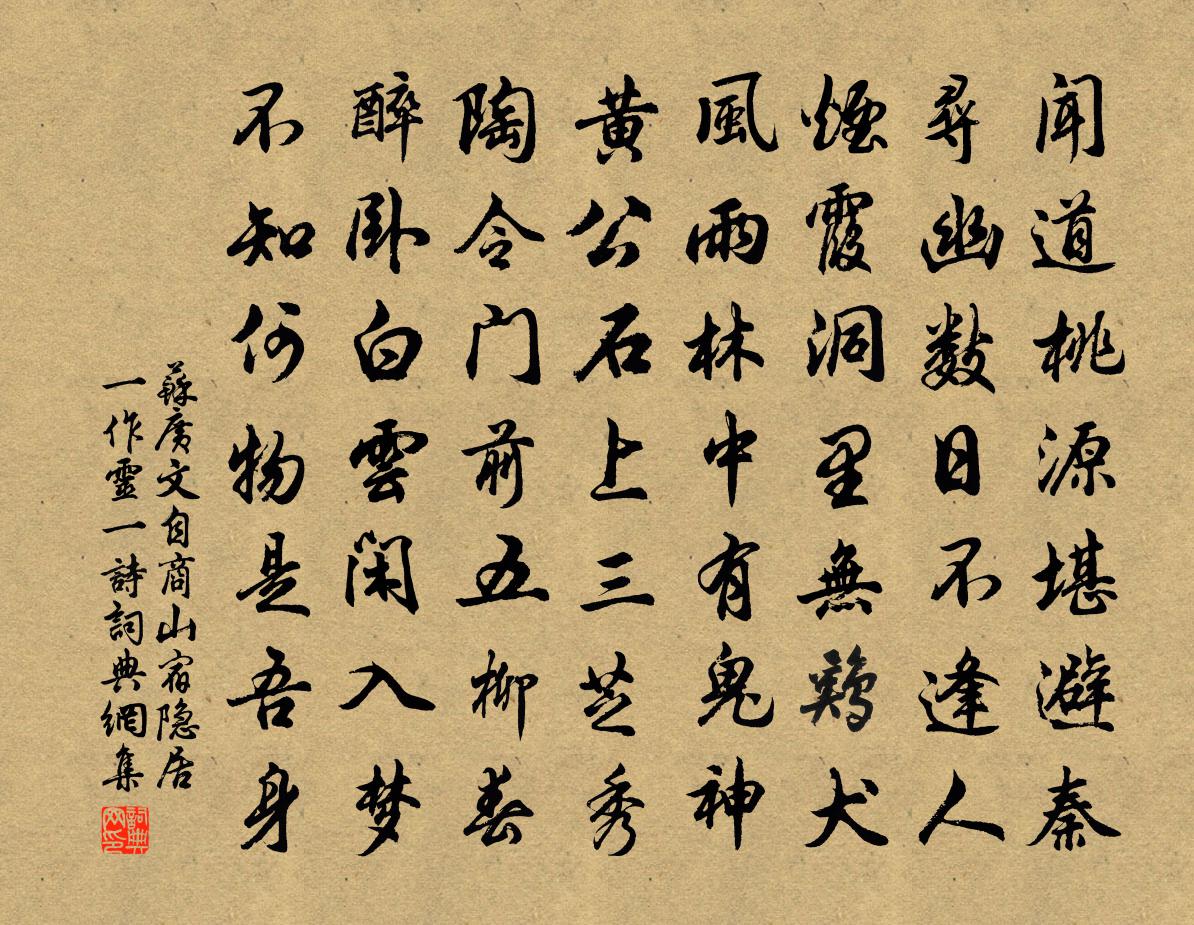 闻道桃源堪避秦
尋幽數日不逢人
煙霞洞里無鷄犬
風雨林中有鬼神
黄公石上三芝秀
陶令门前五柳春
醉卧白雲闲入梦
不知何物是吾身
蘇廣文自商山宿隐居
一作靈一詩詞典網集
詞典网印